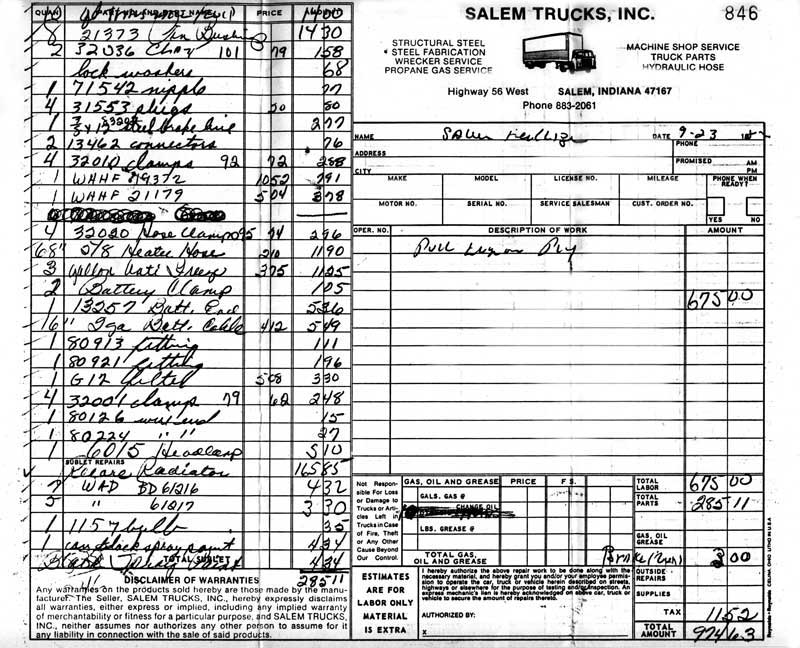 SALEM TRUCKS, INC. 846
STRUCTURAL STEEL
STEEL FABRICATION
WRECKER SERVICE
PROPANE GAS SERVICE
MACHINE SHOP SERVICE
TRUCK PARTS
HYDRAULIC HOSE
Highway 56 West SALEM, INDIANA 47167
Phone 883-2061
QUAN. PRICE AMOUNT
1400
8 21373 Pin Bushing 1430
2 32036 Clamp 101 79 158
lock washers 68
1 71542 nipple 77
4 31553 plugs 20 80
1 steel brake line 277
2 13462 connectors 76
4 32010 clamps 92 72 288
1 WAHF 79372 1052 791
1 WAHF 21179 504 378
4 32020 Hose Clamps 95 74 296
68" 5/8 Heater Hose 210 1190
3 gallon Anti Freeze 375 1125
2 Battery Clamp 105
1 13257 Batt. End 536
16" 2ga Batt. Cable 412 549
1 80913 fitting 111
1 80921 fitting 196
1 G12 508 330
4 32001 clamp 79 62 248
1 80126 wire end 15
1 80224 " " 27
1 6015 Headlamp 510
SUBLET REPAIRS
Radiator 16585
2 WAD BD 61216 432
5 " 61217 330
1 1157 bulb 35
1 can black spray paint 434
TOTAL SUBLET 434
28511
DISCLAIMER OF WARRANTIES
Any warranties on the products sold hereby are those made by the manufacturer. The Seller, SALEM TRUCKS, INC., hereby expressly disclaims
all warranties, either express or implied, including any implied warranty
of merchantability or fitness for a particular purpose, and SALEM TRUCKS,
INC., neither assumes nor authorizes any other person to assume for it
any liability in connection with the sale of said products.
NAME Salem DATE 9-23 19
ADDRESS PHONE
CITY PROMISED AM PM
MAKE MODEL LICENSE NO. MILEAGE PHONE WHEN READY?
MOTOR NO. SERIAL NO. SERVICE SALESMAN CUST. ORDER NO. YES NO
OPER. NO. DESCRIPTION OF WORK AMOUNT
Pull
675 00
Not Responsible For Loss or Damage to Trucks or Articles Left in Trucks in Case of Fire, Theft or Any Other Cause Beyond Our Control.
GAS, OIL AND GREASE PRICE
GALS. GAS @
CHANGE OIL
LBS. GREASE @
TOTAL GAS, OIL AND GREASE
TOTAL LABOR 675 00
TOTAL PARTS 285 11
GAS, OIL AND GREASE
3 00
OUTSIDE REPAIRS
SUPPLIES
TAX 11 52
TOTAL AMOUNT 974 63
ESTIMATES
ARE FOR
LABOR ONLY
MATERIAL
IS EXTRA
I hereby authorize the above repair work to be done along with the
necessary material, and hereby grant you and/or your employees permission to operate the car, truck or vehicle herein described on streets,
highways or elsewhere for the purpose of testing and/or inspection. An
express mechanic's lien is hereby acknowledged on above car, truck or
vehicle to secure the amount of repairs thereto.
AUTHORIZED BY:
X